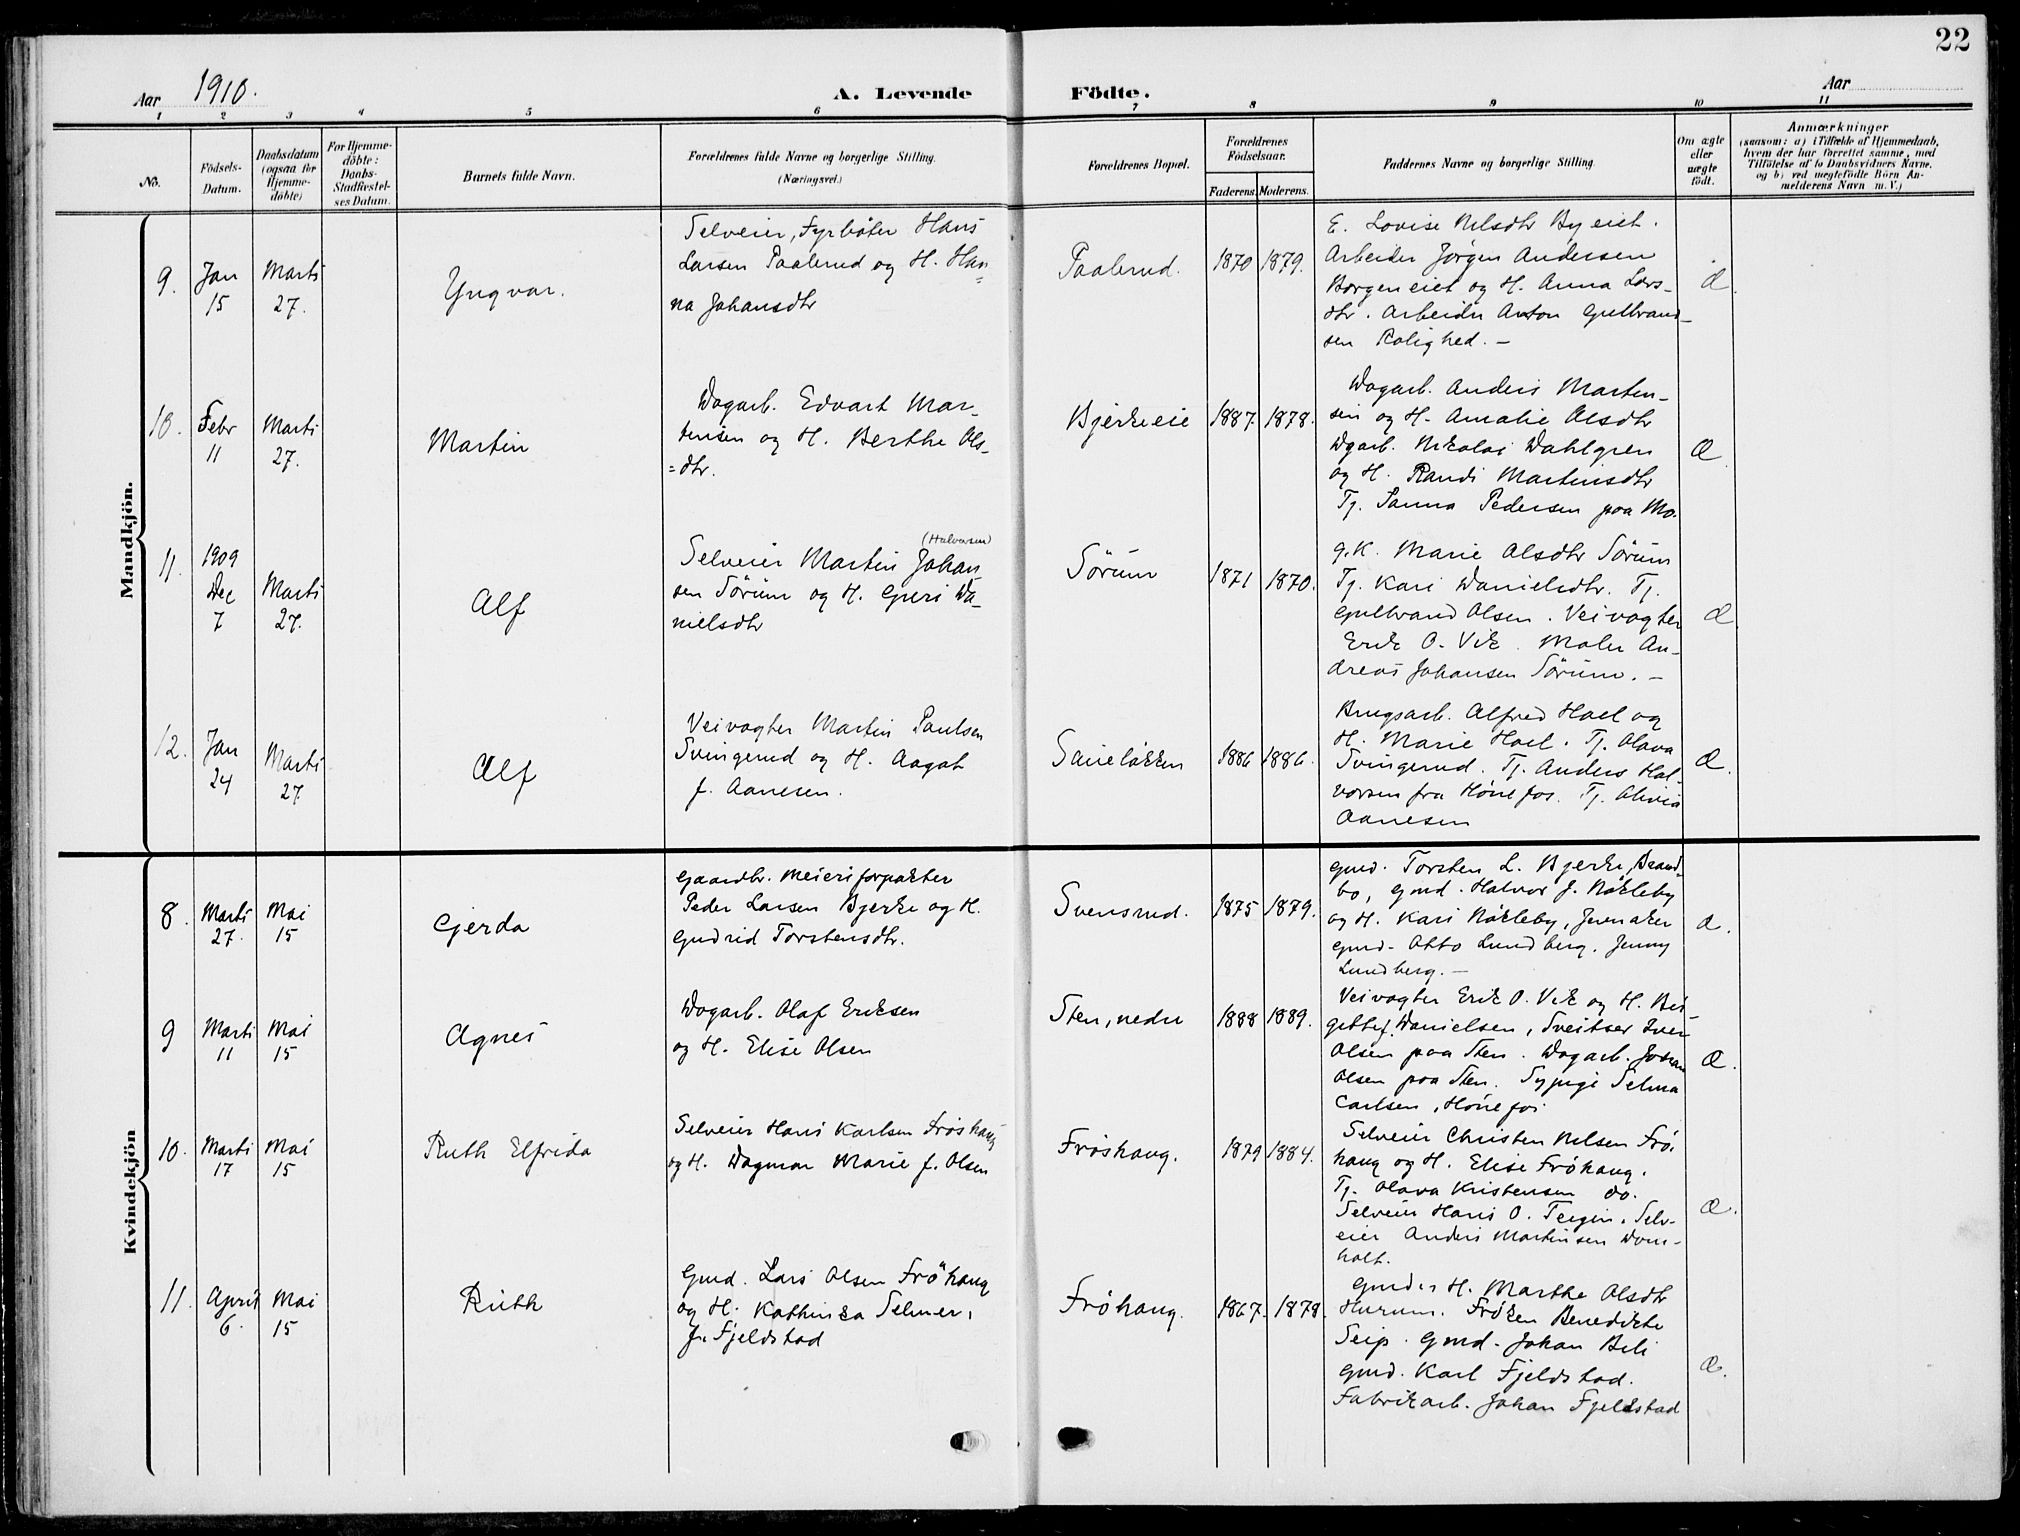 22
Aar 1910.
A. Levende Födte.
Aar
1 2 3 4 5 6 7 8 9 10 11
No.
Födsels-
Datum.
Daabsdatum
(ogsaa for
Hjemme-
döbte)
For Hjemme-
döbte:
Daabs-
Stadfæstel-
ses Datum.
Barnets fulde Navn.
Forældrenes fulde Navne og borgerlige Stilling.
(Næringsvei.)
Forældrenes Bopæl.
Forældrenes
Födselsaar.
Faderens. Moderens.
Faddernes Navne og borgerlige Stilling.
Om ægte
eller
uægte
födt.
Anmærkninger
(saasom: a) i Tilfælde af Hjemmedaab,
hvem der har forrettet samme, med
Tilföielse af to Daabsvidners Navne,
og b) ved uægtefödte Börn An-
melderens Navn m. V.)
Mandkjön.
9.
Jan
15
Marti
27.
Yngvar.
Selveier, Fyrböter Hans
Larsen Paalerud og H. Han
=
na Johansdtr
Paalerud.
1870 1879.
E. Lovise Nilsdtr Byeiet.
Arbeider Jørgen Andersen
Borgeneiet og H. Anna Lars-
dtr. Arbeider Anton Gulbrand-
sen Rolighed. -
Æ.
10.
Febr
11
Marti
27.
Martin
Dagarb. Edvart Mar-
tensen og H. Berthe Ols-
=dtr.
Bjerkeeie
1887. 1878.
Dagarb. Anders Marten-
sen og H. Amalie Olsdtr
Dgarb. Nikolai Dahlgren
og H. Randi Martinsdtr
Tj. Sanna Pedersen paa Mo.
Æ.
11.
1909
Dec
7
Marti
27.
Alf
(Halvorsen)
Selveier Martin Johan
sen Sörum og H. Guri Da-
nielsdtr
Sörum
1871 1870.
g.K. Marie Olsdtr Sörum
Tj. Kari Danielsdtr. Tj.
Gulbrand Olsen. Veivogter
Erik O. Vik. Maler An-
dreas Johansen Sörum. -
Æ.
12.
Jan
24
Marti
27
Alf
Veivogter Martin Paulsen
Svingerud og H. Aagot
f. Aanesen.
1886 1886.
Brugsarb. Alfred Hoel og
H. Marie Hoel. Tj. Olava
Svingerud. Tj. Anders Hal-
vorsen fra Hönefos. Tj. Olivia
Aanesen
Æ.
Kvindekjön
8.
Marti
27.
Mai
15
Gjerda
Gaardbr. Meieriforpakter
Peder Larsen Bjerke og H.
Gudrid Torstensdtr.
Svensrud.
1875 1879.
Gmd. Torsten L. Bjerke, Brand-
bo, Gmd. Halvor J. Nökleby
og H. Kari Nökleby, Jevnaker
Gmd. Otto Lundberg. Jenny
Lundberg. -
Æ.
9
Marti
11
Mai
15
Agnes
Dagarb. Olaf Eriksen
og H. Elise Olsen
Sten, nedre
1888 1889.
Veivogter Erik O. Vik og H. Bir-
gitte f. Danielsen, Sveitser Iver
Olsen paa Sten. Dagarb. Johan
Olsen paa Sten. Sypige Selma
Carlsen, Hönefos
Æ.
10.
Marti
17
Mai
15
Ruth Elfrida
Selveier Hans Karlsen Fröshaug
og H. Dagmar Marie f. Olsen
Fröshaug.
1879 1884.
Selveier Christen Nilsen Frö-
haug og H. Elise Fröhaug.
Tj. Olava Kristensen do.
Selveier Hans O. Teigen. Selv-
eier Anders Martinsen Dom-
holt.
Æ.
11.
April
6.
Mai
15
Ruth
Gmd. Lars Olsen Fröhaug
og H. Kathinka Selmer,
f. Fjeldstad
Fröhaug.
1867. 1878.
Gmdes H. Marthe Olsdtr
Hurum. Fröken Benedikte
Seip. Gmd. Johan Bili
Gmd. Karl Fjeldstad.
Fabrikarb. Johan Fjeldstad
Æ.